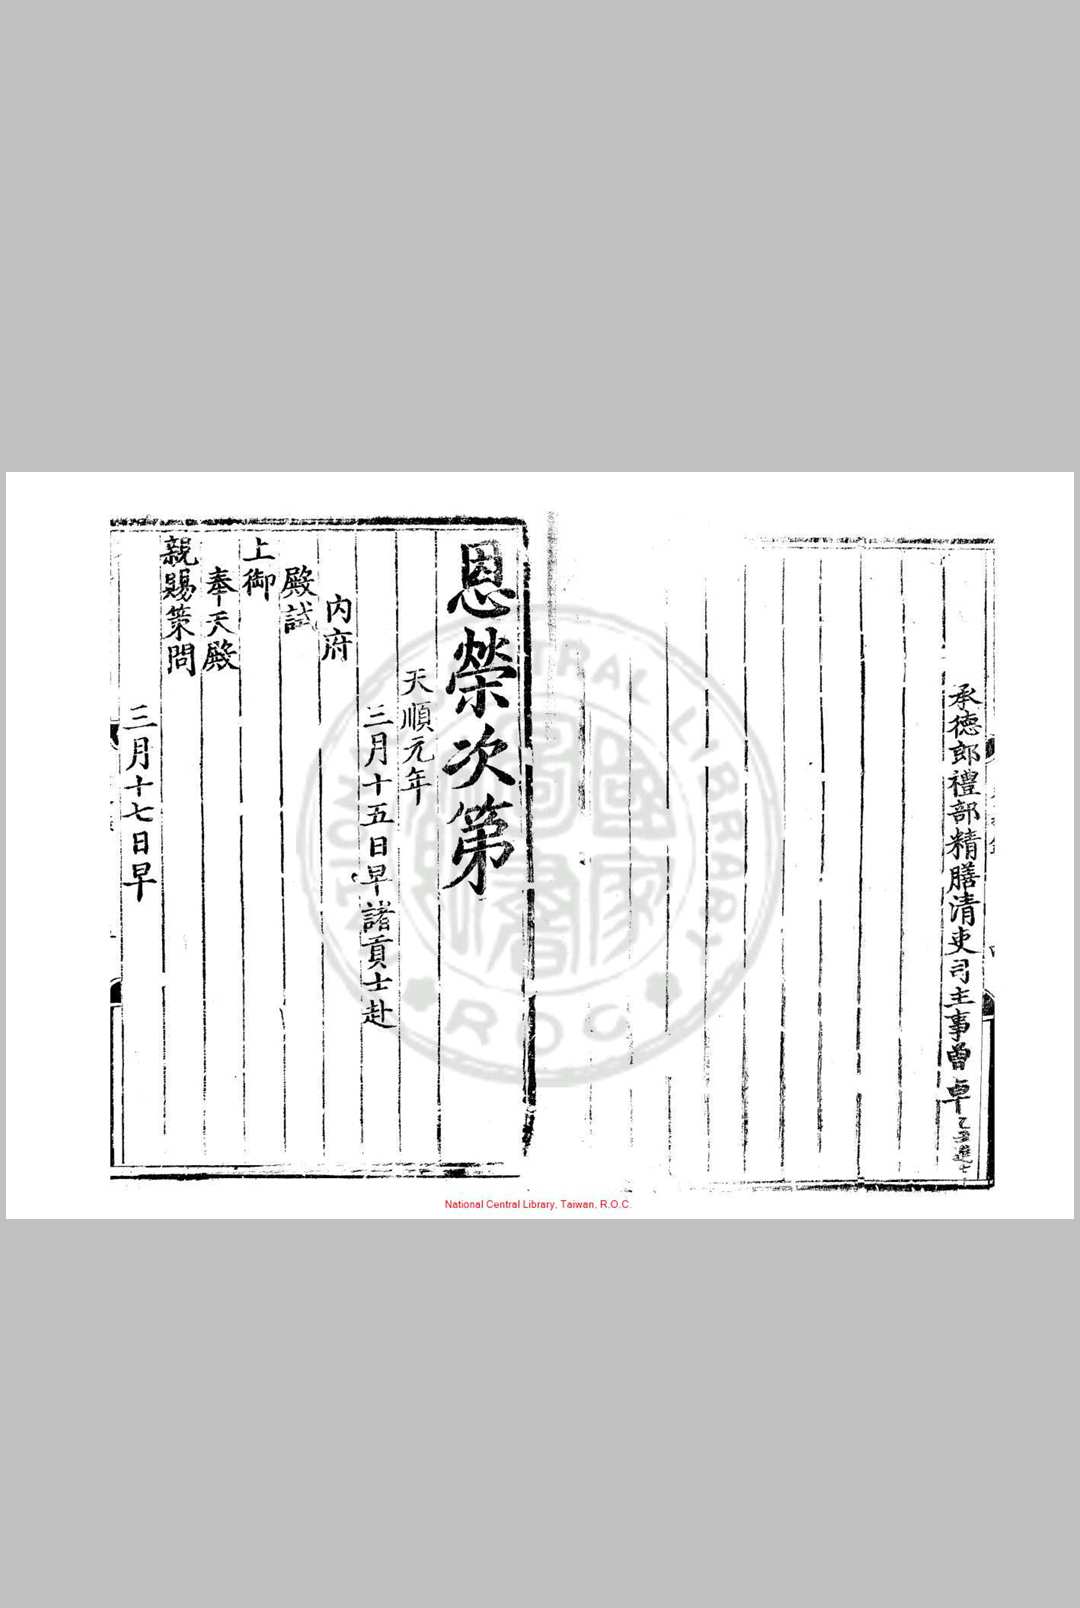 承德郎禮部精膳清吏司主事曾　卓乙丑進士
恩榮次第
天順元年
三月十五日早諸貢士赴
内府
殿試
上御
奉天殿
親賜策問
三月十七日早
NATIONAL CENTRAL LIBRARY
國家圖書
ROC
National Central Library, Taiwan, R.O.C.